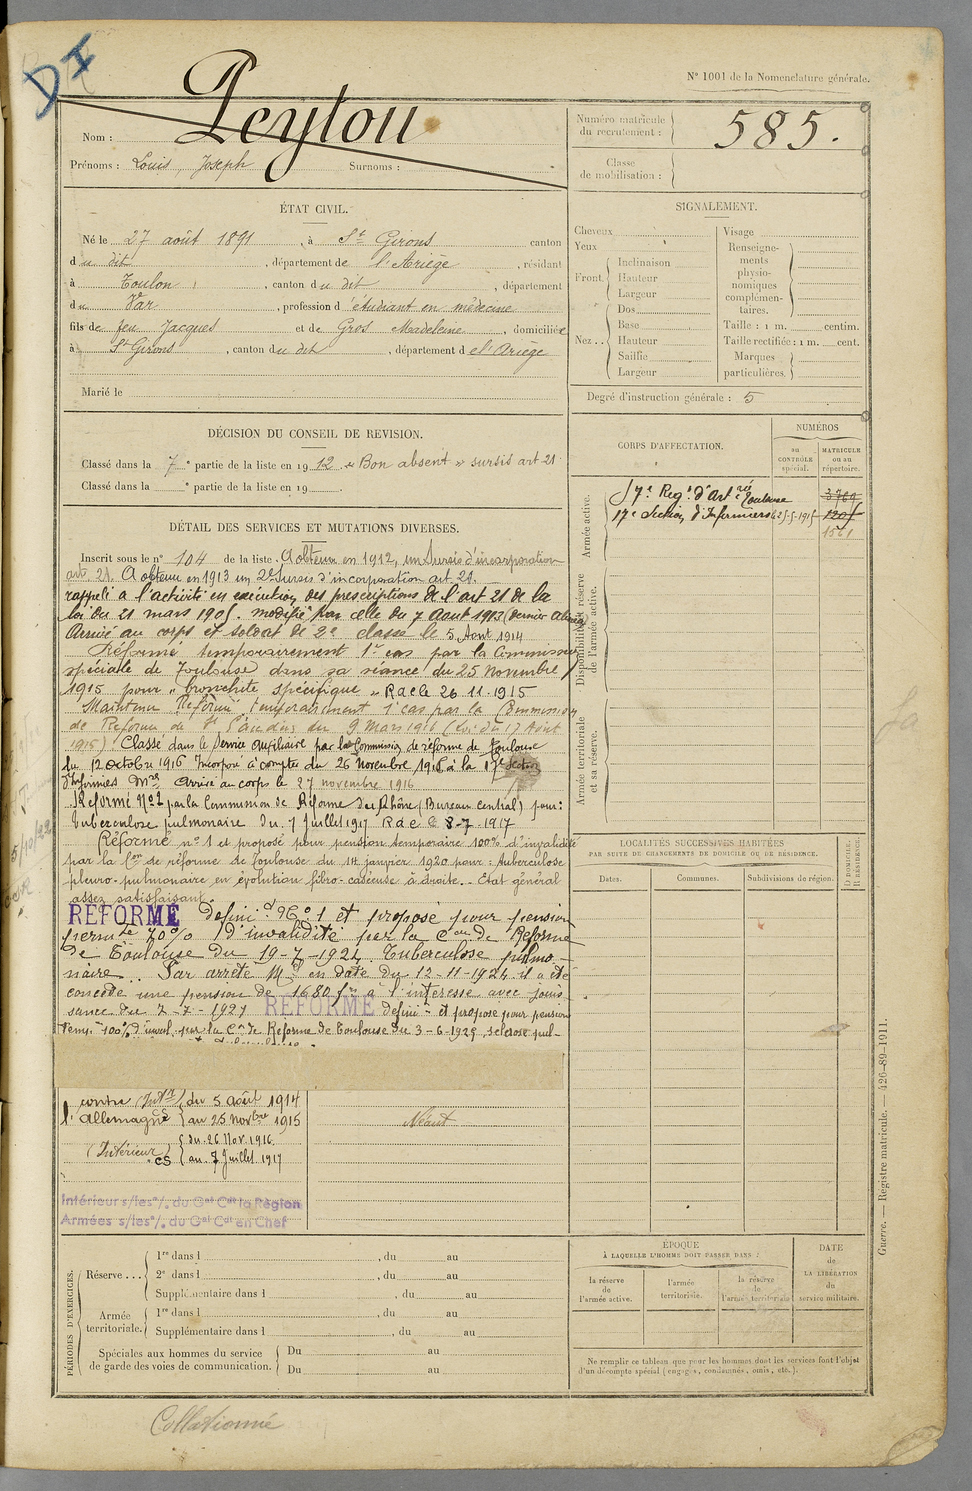 DI
N° 1001 de la Nomenclature générale.
Nom : Peytou
Prénoms : Louis, Joseph Surnoms :
Numéro matricule du recrutement : 585.
Classe de mobilisation :
ÉTAT CIVIL.
Né le 27 août 1891, à St Girons canton
du dit, département de l'Ariège, résidant
à Toulon, canton du dit, département
du Var, profession d'étudiant en médecine
fils de feu Jacques et de Gros Madeleine, domiciliée
à St Girons, canton du dit, département de l'Ariège
Marié le
SIGNALEMENT.
Cheveux
Yeux
Front. Inclinaison
Hauteur
Largeur
Nez .. Dos
Base
Hauteur
Saillie
Largeur
Visage
Renseignements physionomiques complémentaires.
Taille : 1 m. centim.
Taille rectifiée : 1 m. cent.
Marques particulières.
Degré d'instruction générale : 5
DÉCISION DU CONSEIL DE REVISION.
Classé dans la 7e partie de la liste en 1912 « Bon absent » sursis art 21
Classé dans la e partie de la liste en 19 .
CORPS D'AFFECTATION.
NUMÉROS
au CONTRÔLE spécial.
MATRICULE ou au répertoire.
Armée active.
17e Regt d'Artrie Toulouse 3769
17e Section d'Infirmiers
1561
Disponibilité et réserve de l'armée active.
Armée territoriale et sa réserve.
DÉTAIL DES SERVICES ET MUTATIONS DIVERSES.
Inscrit sous le n° 104 de la liste. A obtenu en 1912, un Sursis d'incorporation
art. 21. A obtenu en 1913 un 2e Sursis d'incorporation art. 21.
rappelé à l'activité en exécution des prescriptions de l'art 21 de la
loi du 21 mars 1905. modifié par celle du 7 Août 1913 (dernier alinéa)
Arrivé au corps et soldat de 2e classe le 5 Aout 1914
Réformé temporairement 1r cas par la Commission
spéciale de Toulouse dans sa séance du 25 Novembre
1915 pour « bronchite spécifique » R de le 26-11-1915
Maintenu Réformé temporairement 1r cas par la Commission
de Réforme de St Gaudens du 9 Mars 1916 (Loi du 17 Août
1915) Classé dans le Service Auxiliaire par la Commission de réforme de Toulouse
du 12 octobre 1916 Incorporé à compter du 26 Novembre 1916 à la 17e Section
d'Infirmiers Mres Arrivé au corps le 27 novembre 1916
Réformé N°2 par la Commission de Réforme du Rhône (Bureau Central) pour :
tuberculose pulmonaire du 7 Juillet 1917 R de le 8-7-1917
Réformé n° 1 et proposé pour pension temporaire 100% d'invalidité
par la Con de réforme de Toulouse du 14 janvier 1920 pour : tuberculose
pleuro-pulmonaire en évolution fibro-caséeuse à droite. - Etat général
assez satisfaisant
REFORMÉ défini.f N° 1 et proposé pour pension
permte 70% d'invalidité par la Con de Réforme
de Toulouse du 19-7-1924. Tuberculose pulmo-
naire. Par arrêté Mel en date du 12-11-1924 il a été
concédé une pension de 1680 frs à l'intéressé avec jouis-
sance du 7-7-1921 REFORMÉ défini.f et proposé pour pension
Temp. 100% d'inval. par la Con de Réforme de Toulouse du 3-6-1925, sclérose pul-
contre l'Allemagne (Intr) du 5 août 1914
au 25 Novbre 1915
(Intérieur) CS du 26 Nov. 1916.
au 7 Juillet 1917
Néant
Intérieur s/les °/. du Gal Cdt la Région
Armées s/les °/. du Gal Cdt en Chef
LOCALITÉS SUCCESSIVES HABITÉES
PAR SUITE DE CHANGEMENTS DE DOMICILE OU DE RÉSIDENCE.
Dates.
Communes.
Subdivisions de région.
D. DOMICILE.
R. RÉSIDENCE.
PÉRIODES D'EXERCICES.
Réserve ... 1re dans l , du au
2e dans l , du au
Supplémentaire dans l , du au
Armée territoriale. 1re dans l , du au
Supplémentaire dans l , du au
Spéciales aux hommes du service de garde des voies de communication. Du au
Du au
ÉPOQUE
À LAQUELLE L'HOMME DOIT PASSER DANS :
la réserve de l'armée active.
l'armée territoriale.
la réserve de l'armée territoriale
DATE de LA LIBÉRATION du service militaire.
Ne remplir ce tableau que pour les hommes dont les services font l'objet
d'un décompte spécial (engagés, condamnés, omis, etc.).
Guerre. — Registre matricule. — 426-89-1911.
Collationné